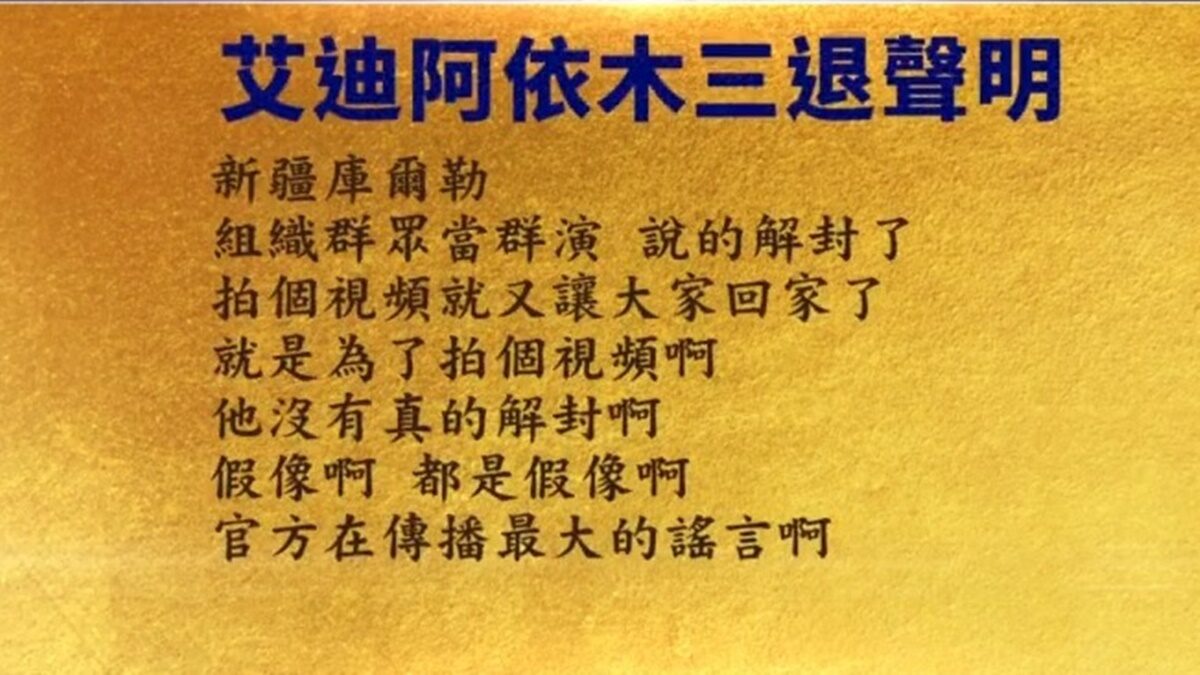 艾迪阿依木三退聲明
新疆庫爾勒
組織群眾當群演 說的解封了
拍個視頻就又讓大家回家了
就是為了拍個視頻啊
他沒有真的解封啊
假像啊 都是假像啊
官方在傳播最大的謠言啊